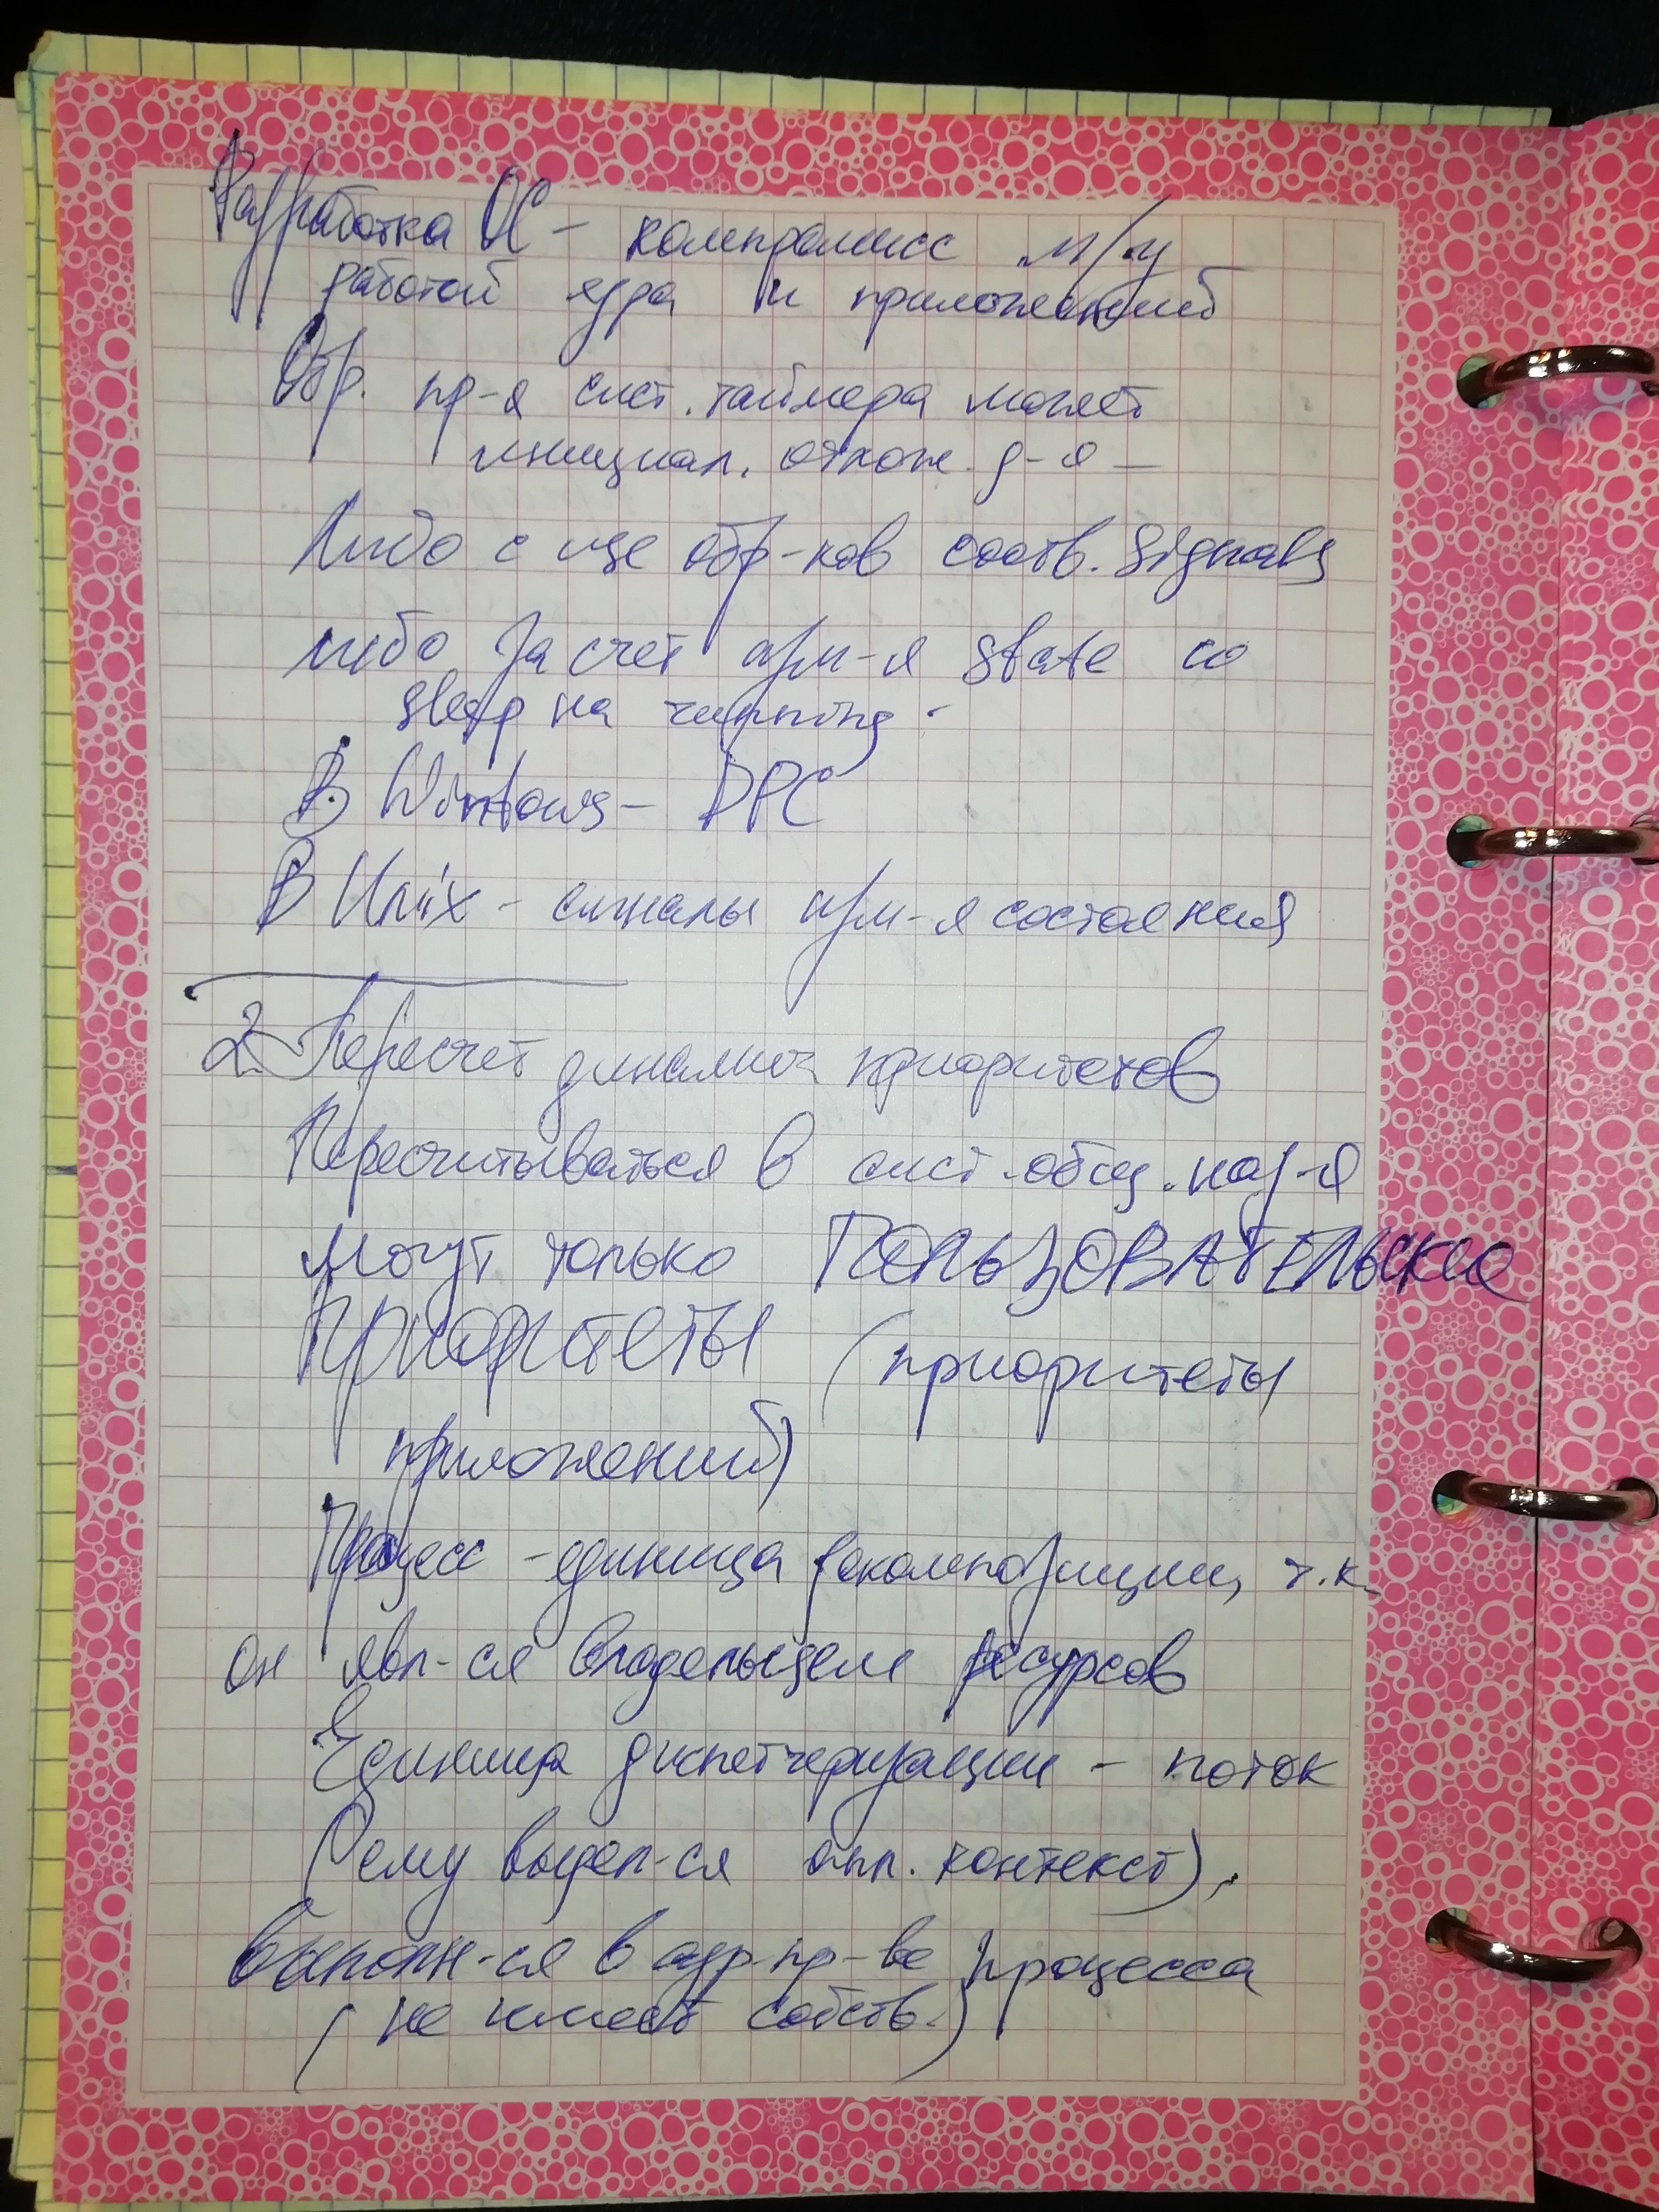 Разработка ОС – компромисс м/у
работой ядра и приложений
Обр. пр-я сист. таймера может
инициал. отлож. д-я –
Либо с обр-ков соотв. signals
либо за счет изм-я state со
sleep на running.
В Windows – DPC
В Unix – сигналы изм-я состояния
2. Пересчет динамич приоритетов
Пересчитываться в сист. общ. наз-я
могут только ПОЛЬЗОВАТЕЛЬСКИЕ
ПРИОРИТЕТЫ (приоритеты
приложений)
Процесс – единица декомпозиции, т.к.
он явл-ся владельцем ресурсов
Единица диспетчеризации – поток
(ему выдел-ся апп. контекст),
выполн-ся в адр. пр-ве процесса
(не имеет собств.)